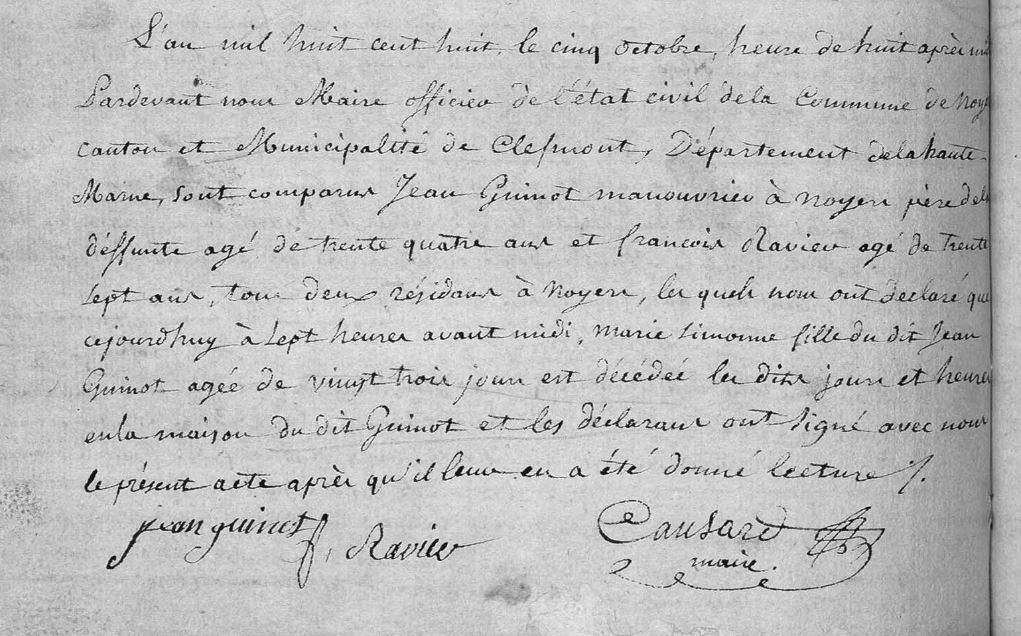 L'an mil huit cent huit, le cinq octobre, heure de huit après mi
Pardevant nous Maire officier de l'état civil dela Commune de Noye
canton et Municipalité de Clefmont, Département delahaute-
Marne, sont comparus Jean Guinot manouvrier à Noyers père dela
déffunte agé de trente quatre ans et francois Ravier agé de trente
sept ans, tous deux résidans à Noyers, les quels nous ont déclaré que
cejourdhuy à sept heures avant midi, marie simonne fille du dit Jean
Guinot agée de vingt trois jours est décédée les dits jours et heures
enla maison du dit Guinot et les déclarans ont signé avec nous
le présent acte après qu'il leur en a été donné lecture /.
jean guinot f, Ravier Causard
maire.